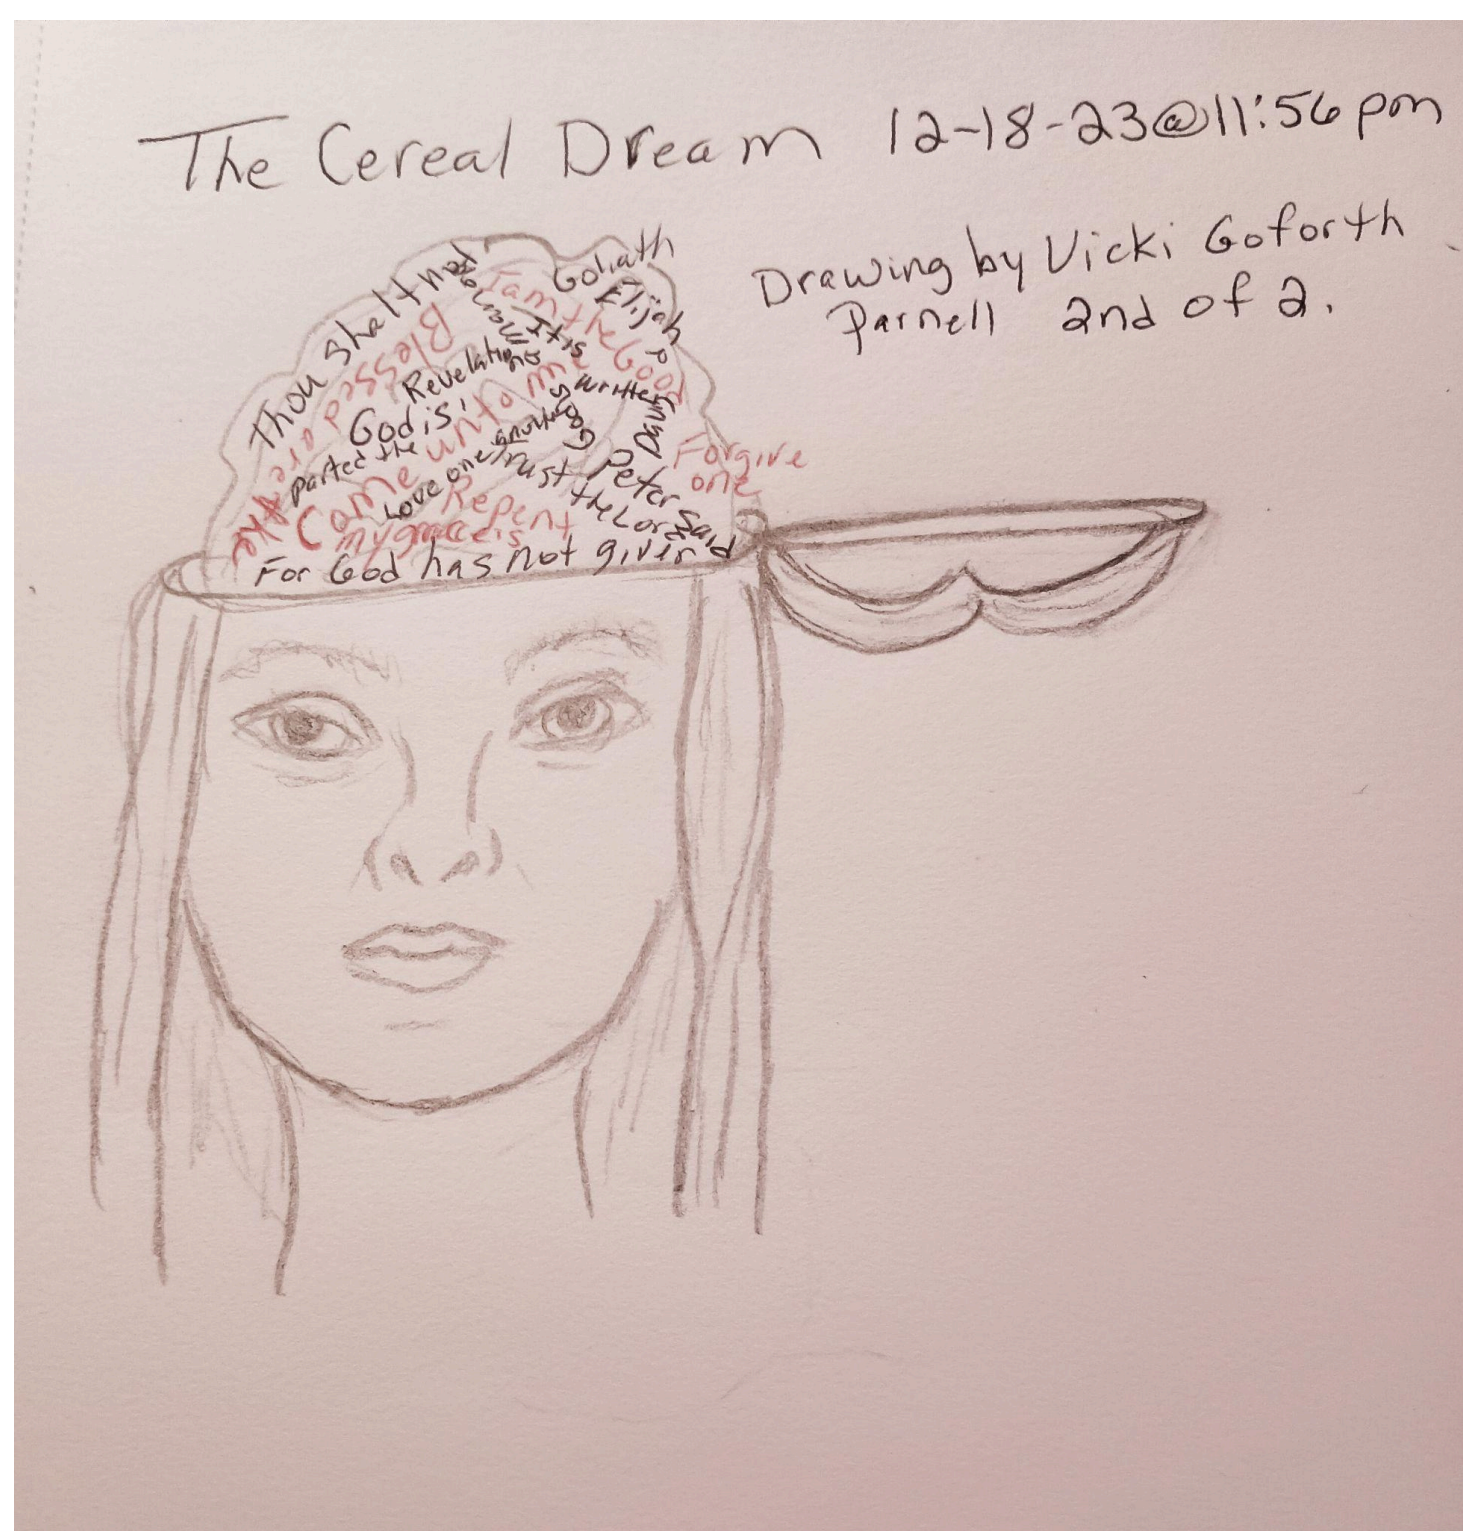 The Cereal Dream 12-18-23@11:56 pm
Drawing by Vicki Goforth
Parnell 2nd of 2.
Goliath
Elijah
Thou shalt not
I am the Good
Blessed are
It is
written
Revelation
God is
Come unto me
parted the
Love one another
Trust the Lord
Peter said
Forgive
one
Repent
my grace is
For God has not given